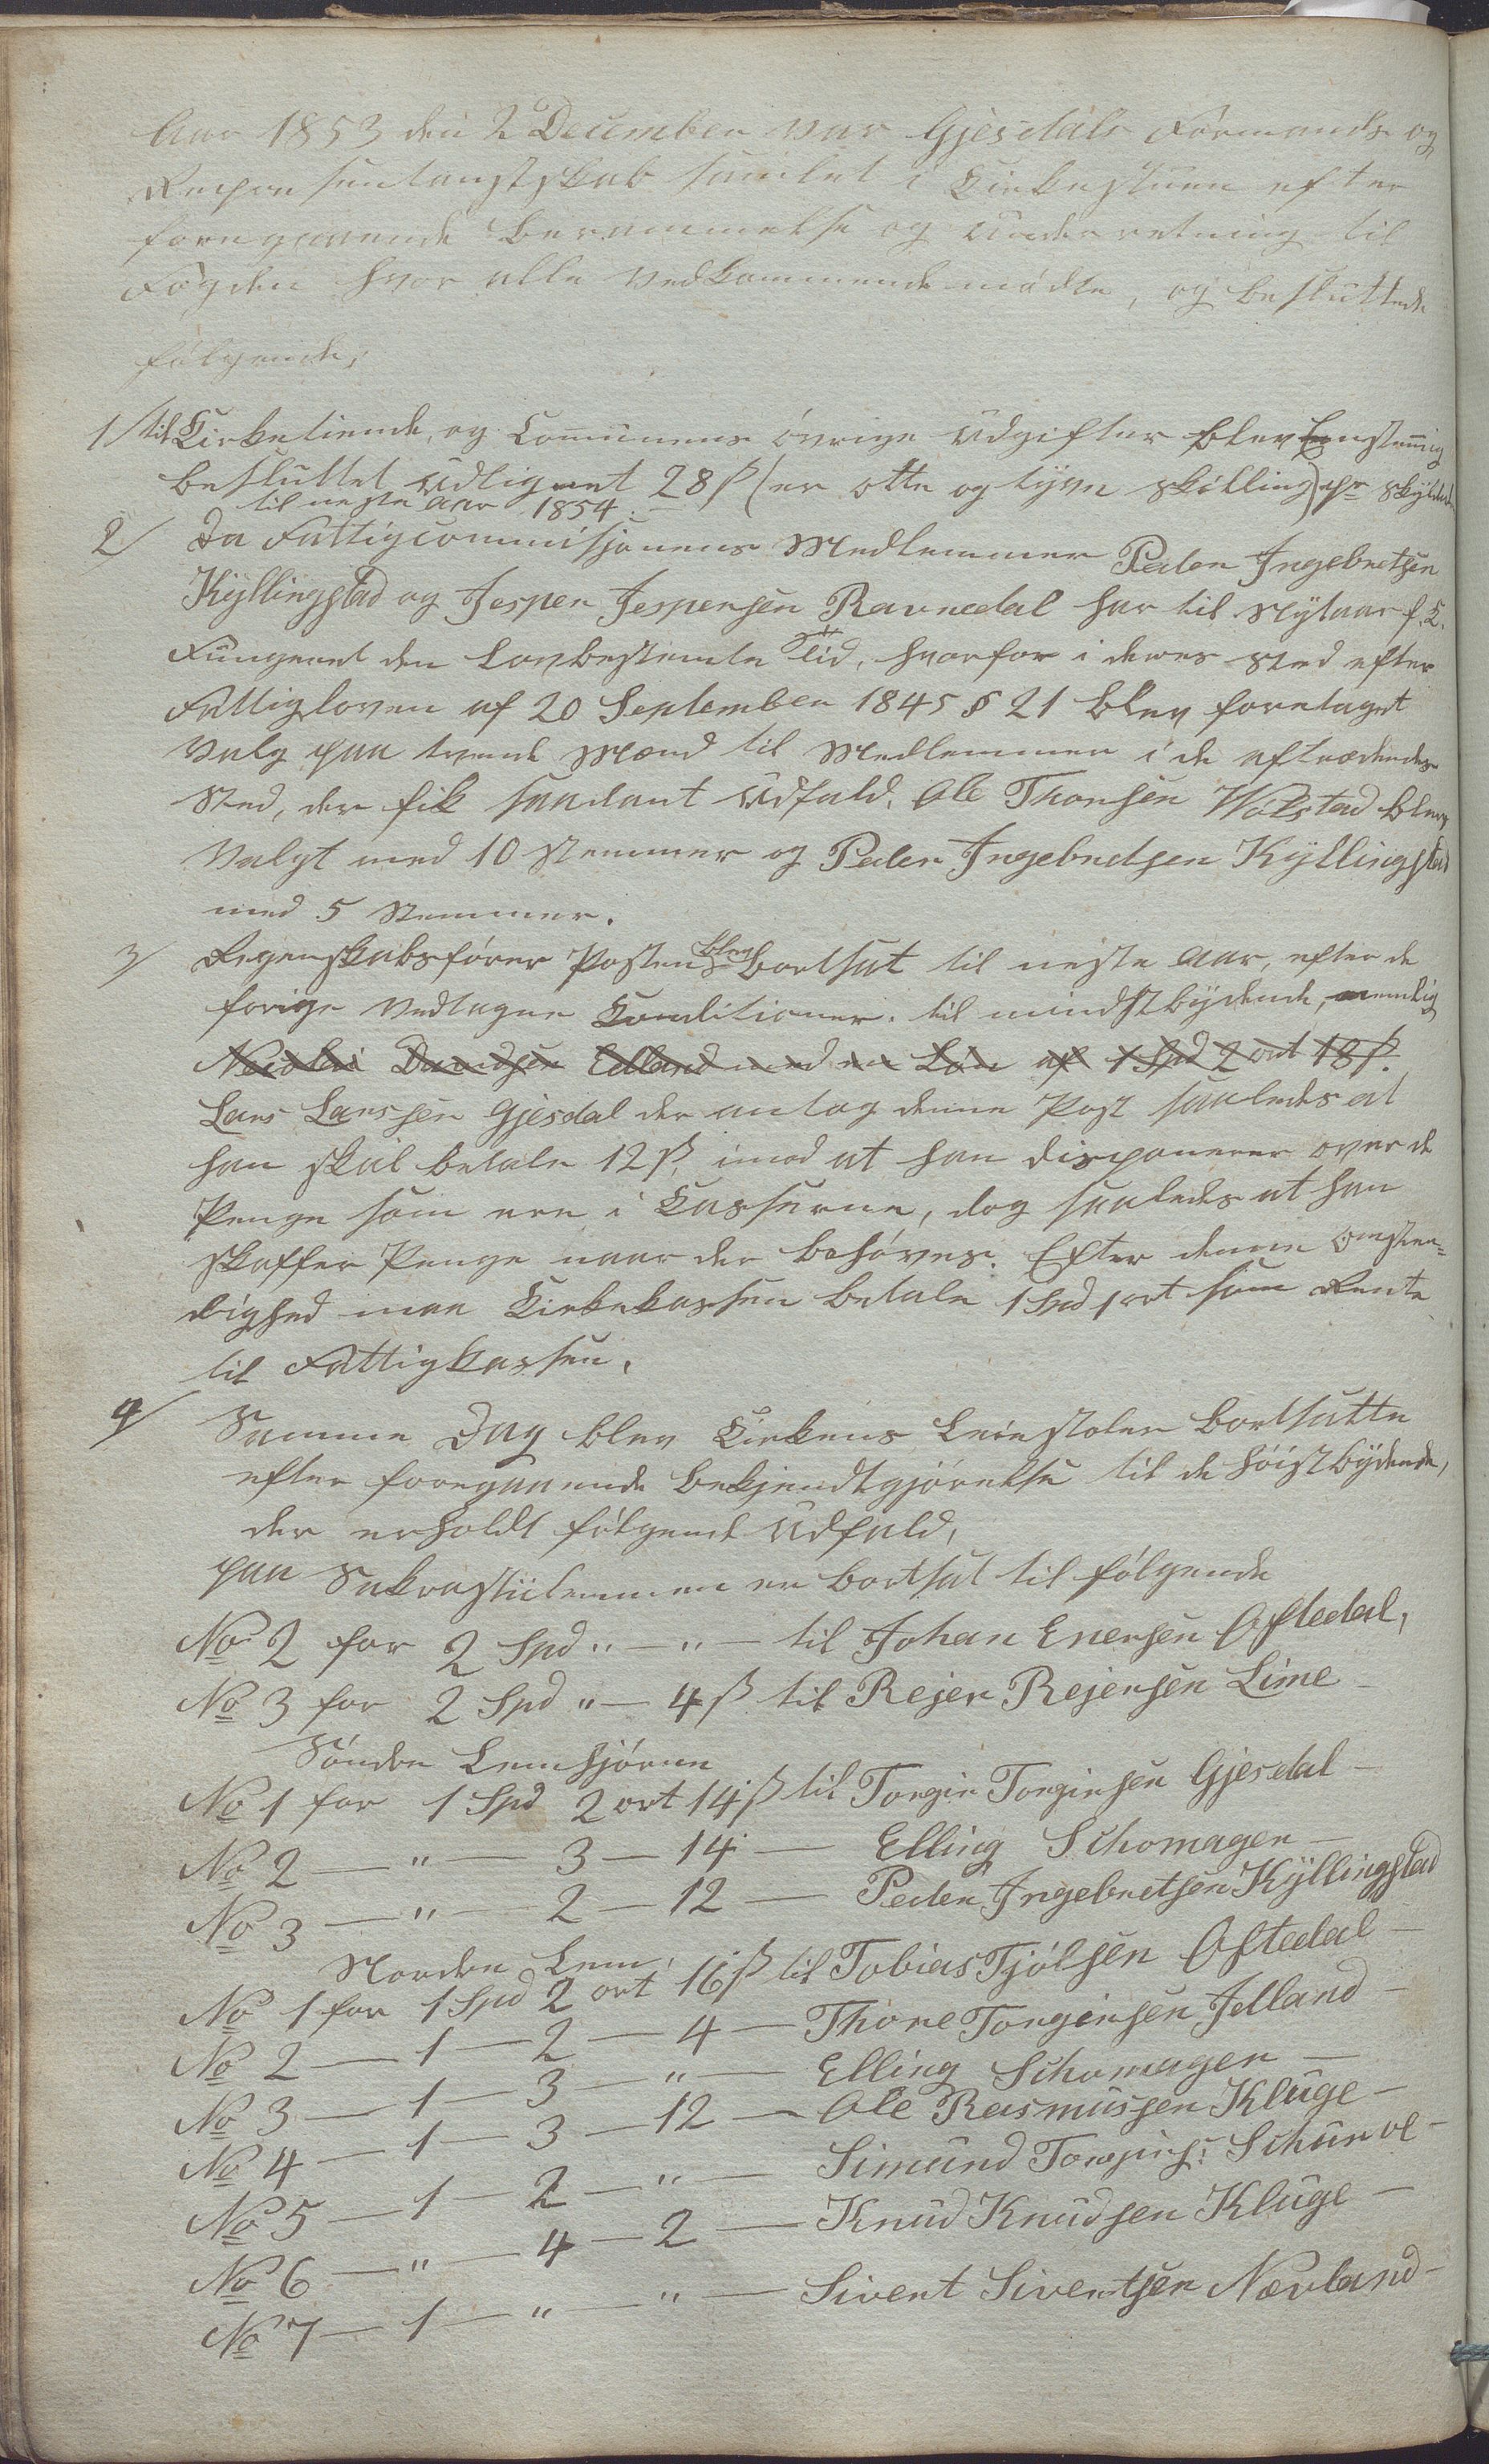 Aar 1853 den 2 December var Gjesdals Formands og
Repræsentantskab samlet i Kirkestuen efter
foregaaende Berammelse og Underretning til
Fogden hvor alle Vedkommende mødte, og besluttede
følgende,
1/ til Kirketiende, og Communens øvrige Udgifter blev Eenstemig
besluttet Udlignet 28 ß (er otte og tyve skilling) pr skylddaler
til neste Aar 1854.
2/ Da Fattigcommisjonens Medlemmer Peder Ingebretsen
Kyllingstad og Jesper Jespersen Ravnedal har til Nytaar f. K.
Fungeret den Lovbestemte Tid, hvorfor i deres sted efter
Fattigloven af 20 September 1845 § 21 blev foretaget
Valg paa tvende Mænd til Medlemmer i de aftrædendes
Sted, der fik saadant Udfald. Ole Thorsen Wølstad blev
Valgt med 10 stemmer og Peder Ingebretsen Kyllingstad
med 5 Stemmer.
3/ Regenskabsfører Posten blev bortsat til neste Aar, efter de
forige Vedtagne Konditioner. til mindstbydende, nemlig
Nicolai Davidsen Edland med en Løn af 1 Spd 2 ort 18 ß.
Lars Larssen Gjesdal der antog denne Post saaledes at
han skal betale 12 ß, imod at han disponerer over de
Penge som ere i Kasserne, dog saaledes at han
skaffer Penge naar der behøves. Efter denne Omsten=
dighed maa Kirkekassen betale 1 Spd 1 ort som Rente
til Fattigkassen.
4/ Samme Dag blev Kirkens Leiestoler bortsatte
efter foregaaende bekjendtgjørelse til de høistbydende,
der erholdt følgende Udfald,
paa Sakrastiilemmen er bortsat til følgende
No 2 for 2 Spd " — " — til Johan Enersen Oftedal,
No 3 for 2 Spd " — 4 ß til Rejer Rejersen Lime
Søndre Lemhjørne
No 1 for 1 Spd 2 ort 14 ß til Torgir Torgirsen Gjesdal —
No 2 — " — 3 — 14 — Elling Schomager —
No 3 — " — 2 — 12 — Peder Ingebretsen Kyllingstad
Nordre Lem,
No 1 for 1 Spd 2 ort 16 ß til Tobias Tjølsen Oftedal —
No 2 — 1 — 2 — 4 — Thore Torgersen Jelland —
No 3 — 1 — 3 — " — Elling Schomager —
No 4 — 1 — 3 — 12 — Ole Rasmussen Kluge —
No 5 — 1 — 2 — " — Simund Torgirs: Schurve —
No 6 — " — 4 — 2 — Knud Knudsen Kluge —
No 7 — 1 — " — " — Sivert Sivertsen Nævland —